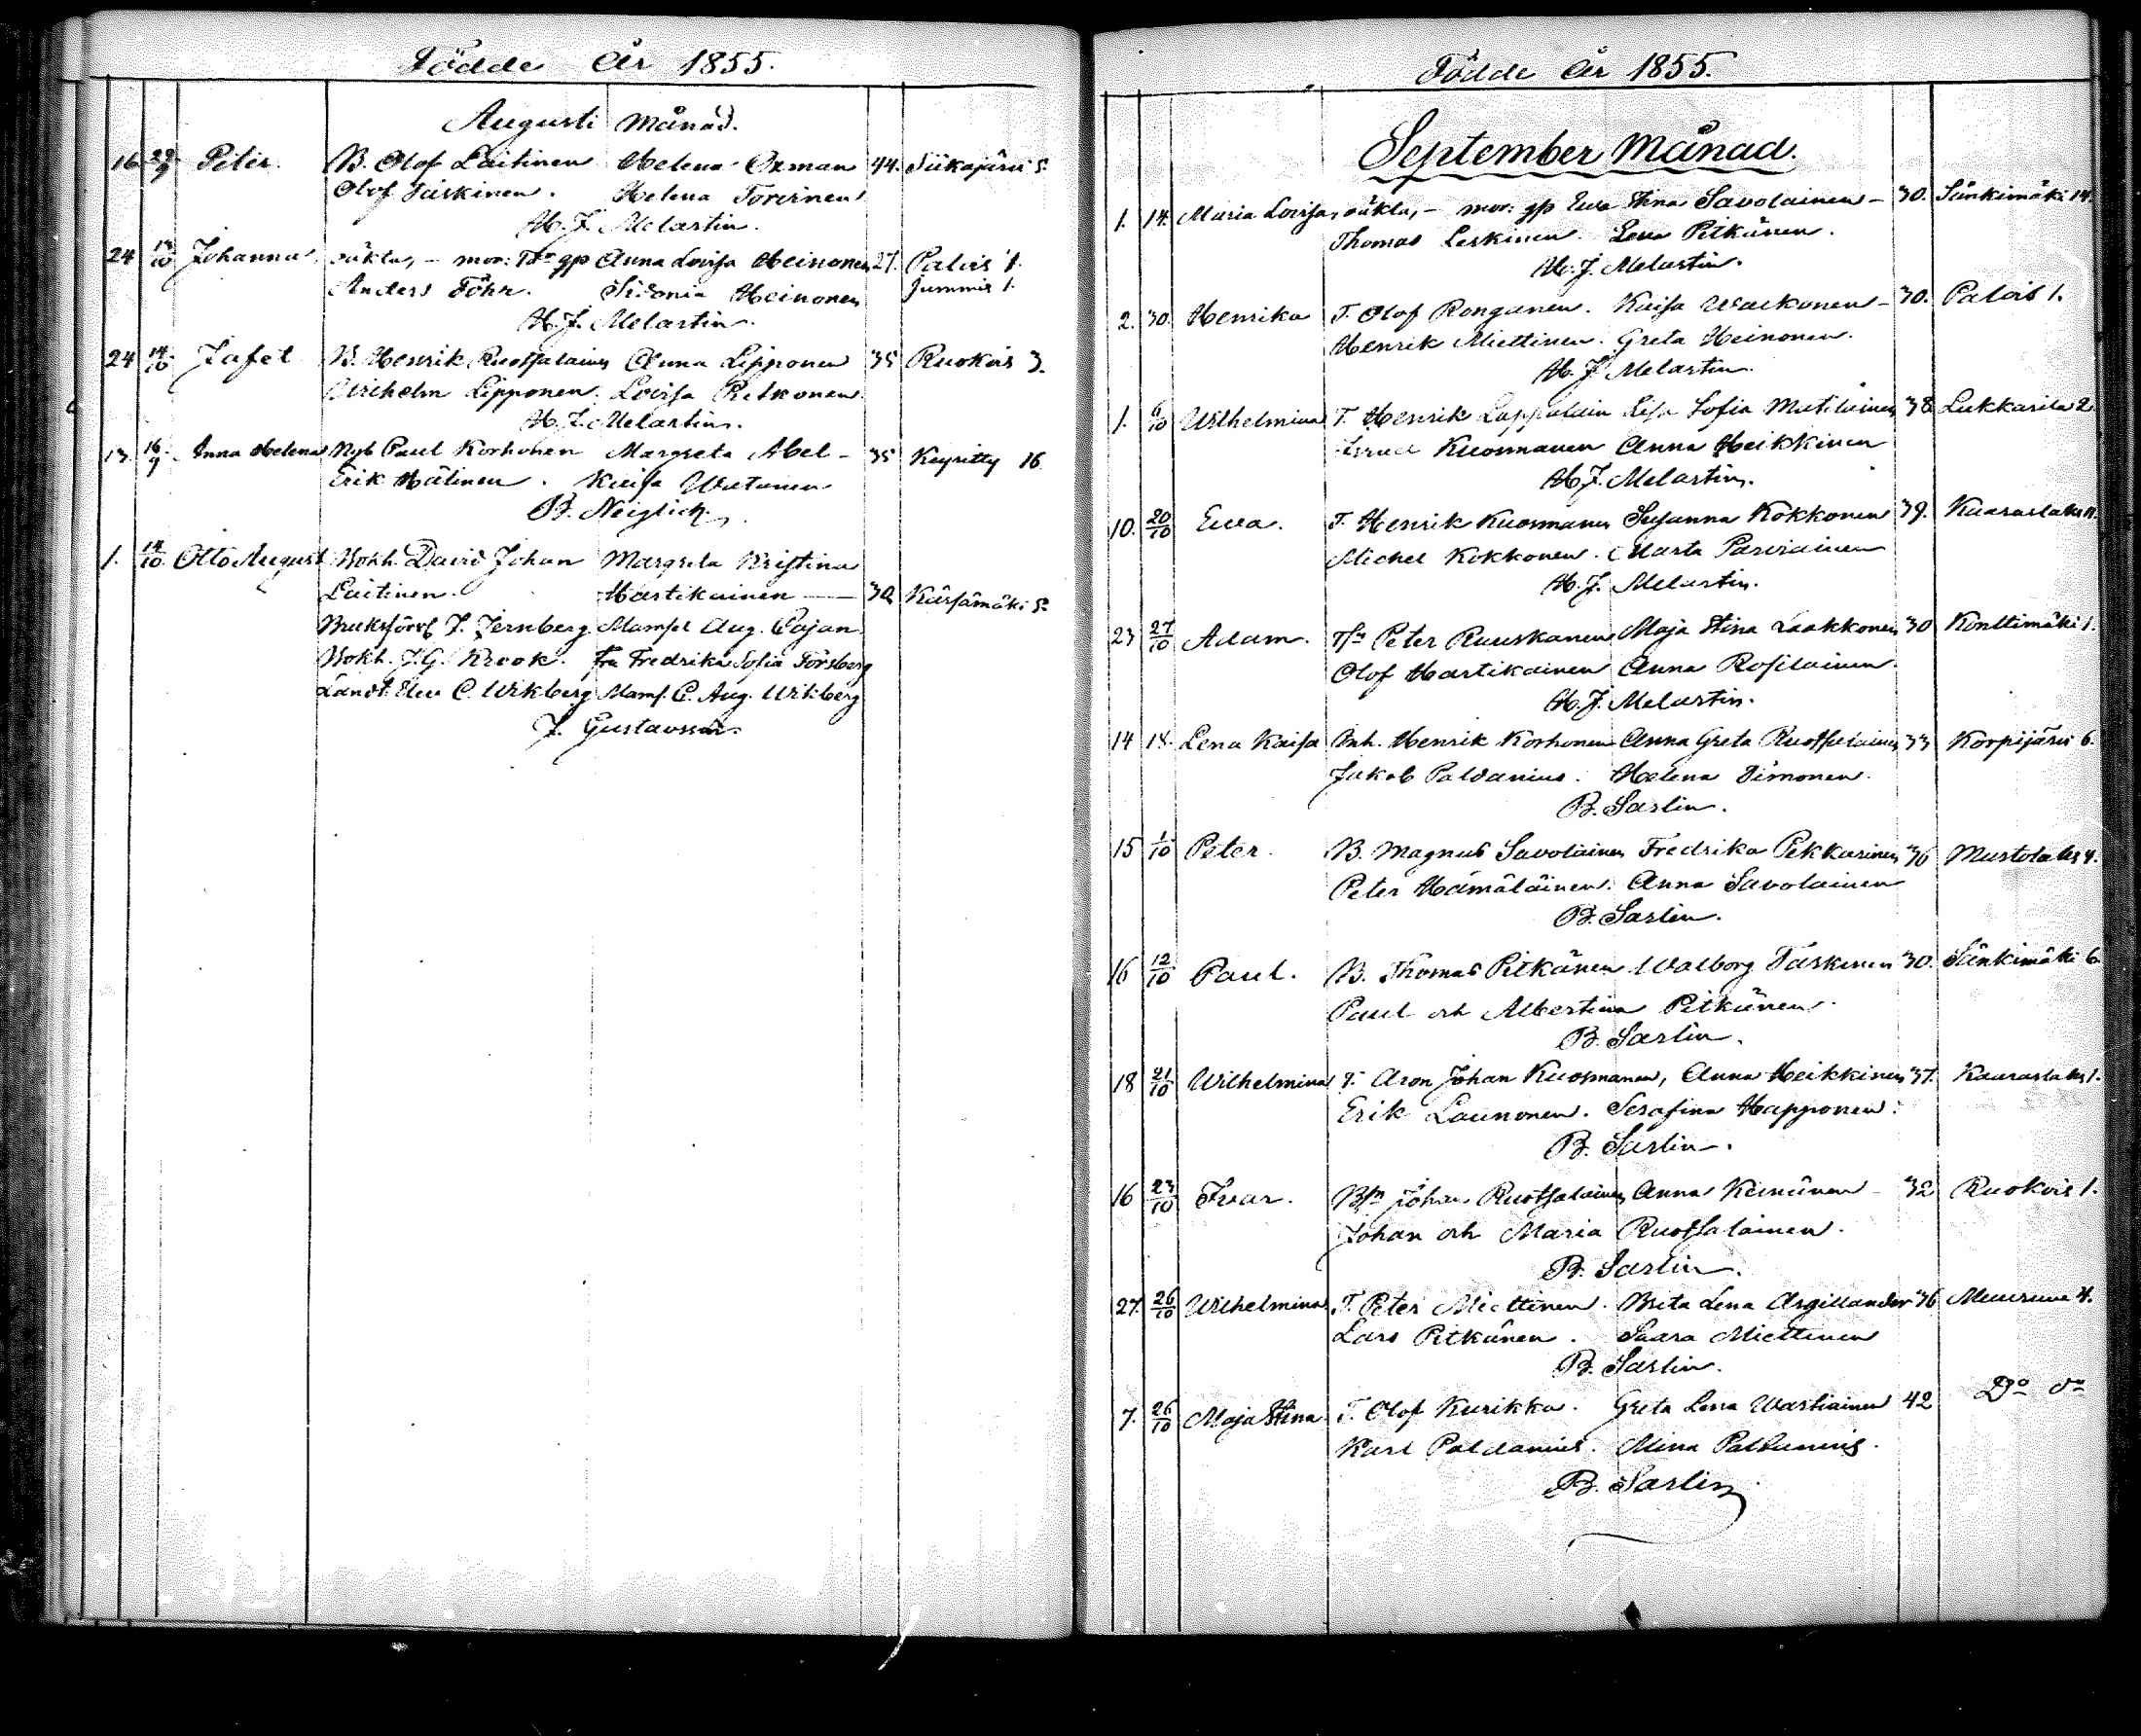 Födde År 1855.
Augusti Månad.
16. 29/9 Peter. B. Olof Laitinen Helena Oxman 44. Siikajärvi 5.
Olof Jäskinen. Helena Toivinen
H. J. Melartin.
24 14/10 Johanna oäkta, – mor: Tdr gp Anna Lovisa Heinonen 27. Palois 1.
Anders Föhr. Sidonia Heinonen Jummis 1.
H. J. Melartin.
24 14/10 Jafet B. Henrik Ruotsalainen Anna Lipponen 35 Ruokois 3.
Wilhelm Lipponen. Lovisa Pitkonen
H. J. Melartin.
13. 16/9 Anna Helena Nyb Paul Korhonen Margreta Abel – 35 Keyritty 16
Erik Hätinen. Kaisa Watanen
B. Neiglick.
1. 14/10 Otto August Bokh. David Johan Margreta Kristina
Laitinen. Hartikainen — 30 Kärsämäki 5.
Bruksförv J. Jernberg. Mamsel Aug. Cajan
Bokh. J. G. Krook. Fru Fredrika Sofia Forsberg
Landt. Elev C. Wikberg Mams. C. Aug. Wikberg
J. Gustavsson.
Födde År 1855.
September Månad.
1. 14. Maria Lovisa, oäkta, – mor: gp Eva Stina Savolainen – 30. Sänkimäki 14.
Thomas Leskinen. Lena Pitkänen.
H. J. Melartin.
2. 30. Henrika T. Olof Ronganen. Kaisa Waekonen – 30. Palois 1.
Henrik Miettinen. Greta Heinonen.
H. J. Melartin.
1. 6/10 Wilhelmina T. Henrik Lappalain Lisa Sofia Mutilainen 38 Lukkarila 2
Israel Kuosmanen Anna Heikkinen
H. J. Melartin.
10. 20/10 Eva. T. Henrik Kuosmanen Susanna Kokkonen 39. Kaaraslaks 11.
Michel Kokkonen. Marta Parviainen
H. J. Melartin.
23 27/10 Adam. Tsn Peter Ruuskanen Maja Stina Laakkonen 30 Konttimäki 1.
Olof Hartikainen Anna Rosilainen
H. J. Melartin.
14 18. Lena Kaisa Inh. Henrik Korhonen Anna Greta Ruotsalainen 33 Korpijärvi 6.
Jakob Paldanius. Helena Timonen.
B. Sarlin.
15 1/10 Peter. B. Magnus Savolainen Fredrika Pekkarinen 36 Mustolaks 4.
Peter Hämäläinen. Anna Savolainen
B. Sarlin.
16 12/10 Paul. B. Thomas Pitkänen Walborg Taskinen 30. Sänkimäki 6.
Paul och Albertina Pitkänen
B. Sarlin.
18 21/10 Wilhelmina T. Aron Johan Kuosmanen, Anna Heikkinen 37. Kaaraslaks 1.
Erik Launonen. Serafina Happonen.
B. Sarlin.
16 23/10 Ivar. Bsn Johan Ruotsalainen Anna Keinänen – 32 Ruokois 1.
Johan och Maria Ruotsalainen.
B. Sarlin.
27. 26/10 Wilhelmina T. Peter Miettinen. Brita Lena Argillander 36 Muuruvue 4.
Lars Pitkänen. Saara Miettinen
B. Sarlin.
7. 26/10 Maja Stina T. Olof Kurikka. Greta Lena Wartiainen 42 Do do
Karl Paldanius. Mina Paldanius.
B. Sarlin